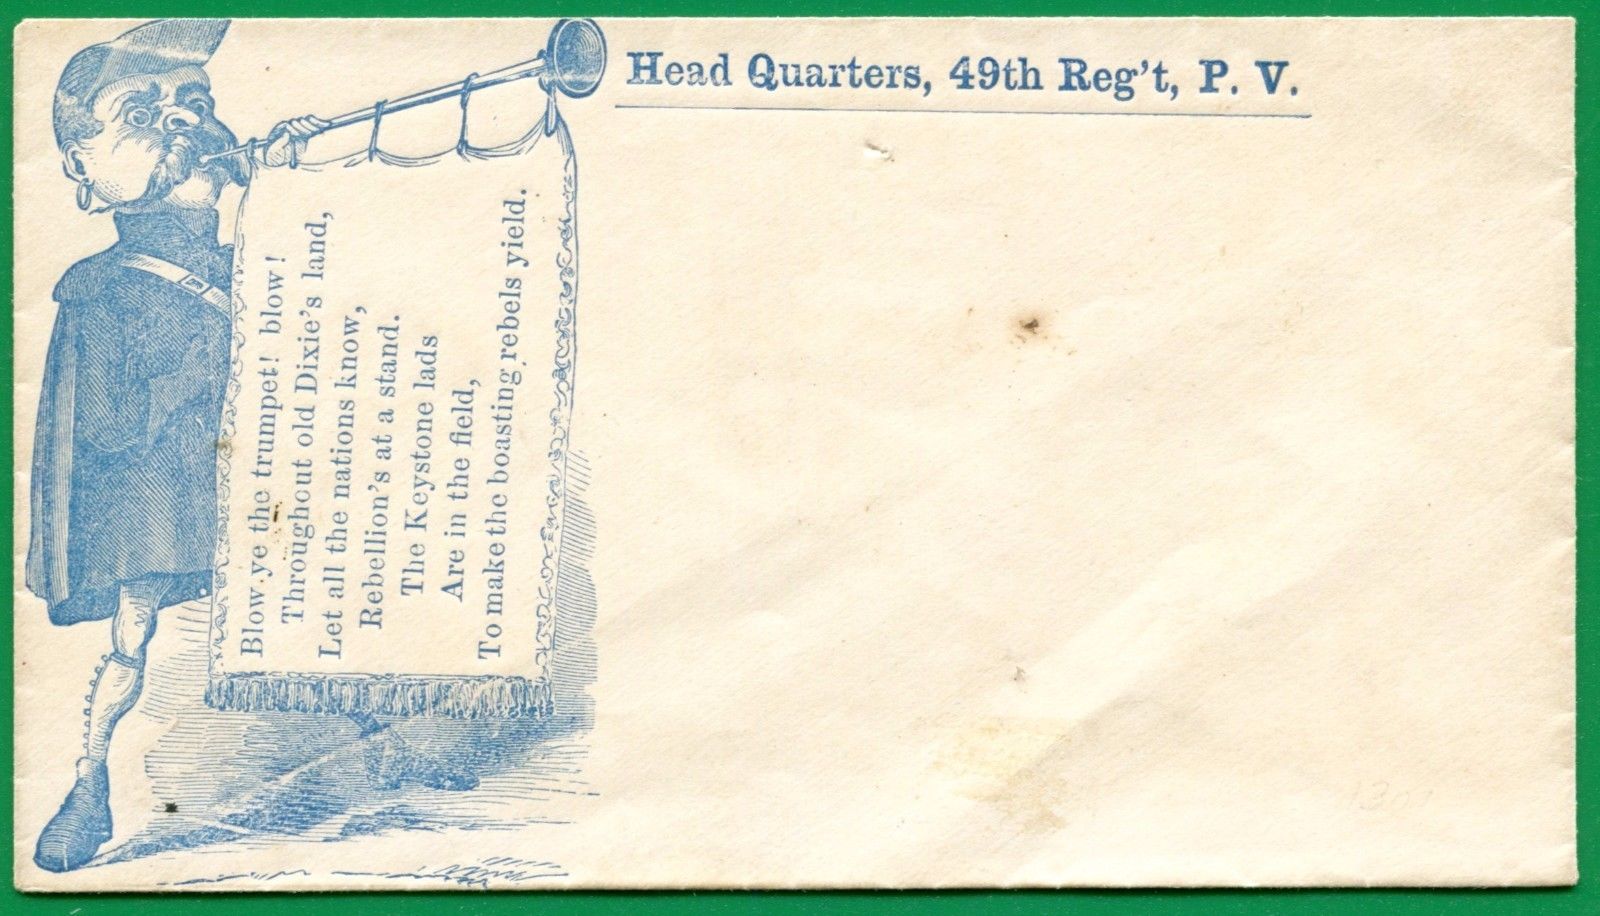 Head Quarters, 49th Reg't, P. V.
Blow ye the trumpet! blow!
Throughout old Dixie's land,
Let all the nations know,
Rebellion's at a stand.
The Keystone lads
Are in the field,
To make the boasting rebels yield.